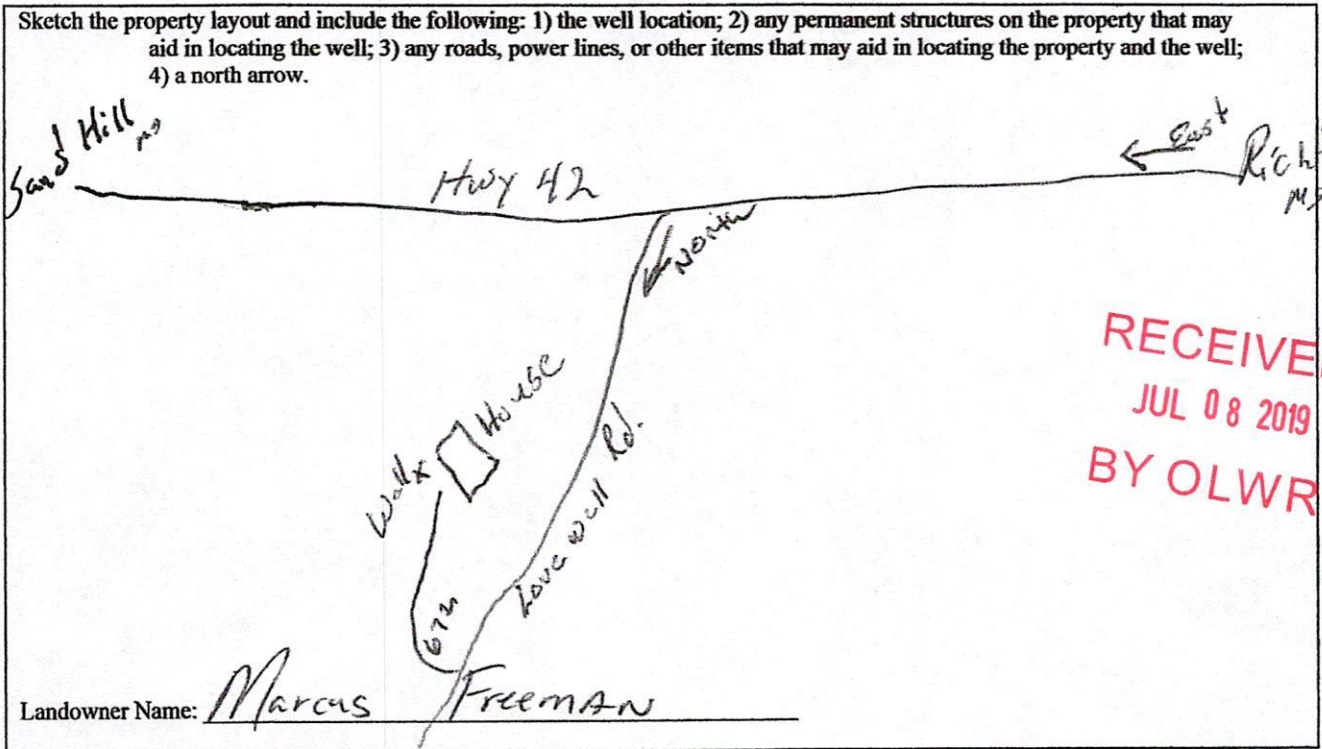 Sketch the property layout and include the following: 1) the well location; 2) any permanent structures on the property that may
aid in locating the well; 3) any roads, power lines, or other items that may aid in locating the property and the well;
4) a north arrow.
Sand Hill MS
Hwy 42
East
Rich
MS
North
RECEIVE
JUL 08 2019
BY OLWR
House
Well X
Lovewell Rd.
672
Landowner Name: Marcus Freeman